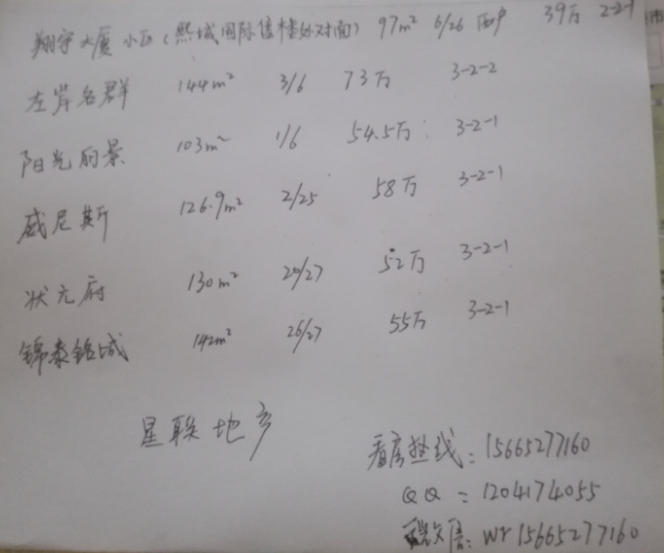 翔宇大厦 小区(熙城国际售楼处对面) 97m² 6/26 西户 39万 2-2-1
左岸名群 144m² 3/6 73万 3-2-2
阳光丽景 103m² 1/6 54.5万 3-2-1
威尼斯 126.9m² 2/25 58万 3-2-1
状元府 130m² 20/27 52万 3-2-1
锦泰铭城 142m² 26/27 55万 3-2-1
星联地产
看房热线:15665277160
QQ:1204174055
微信:wr15665277160